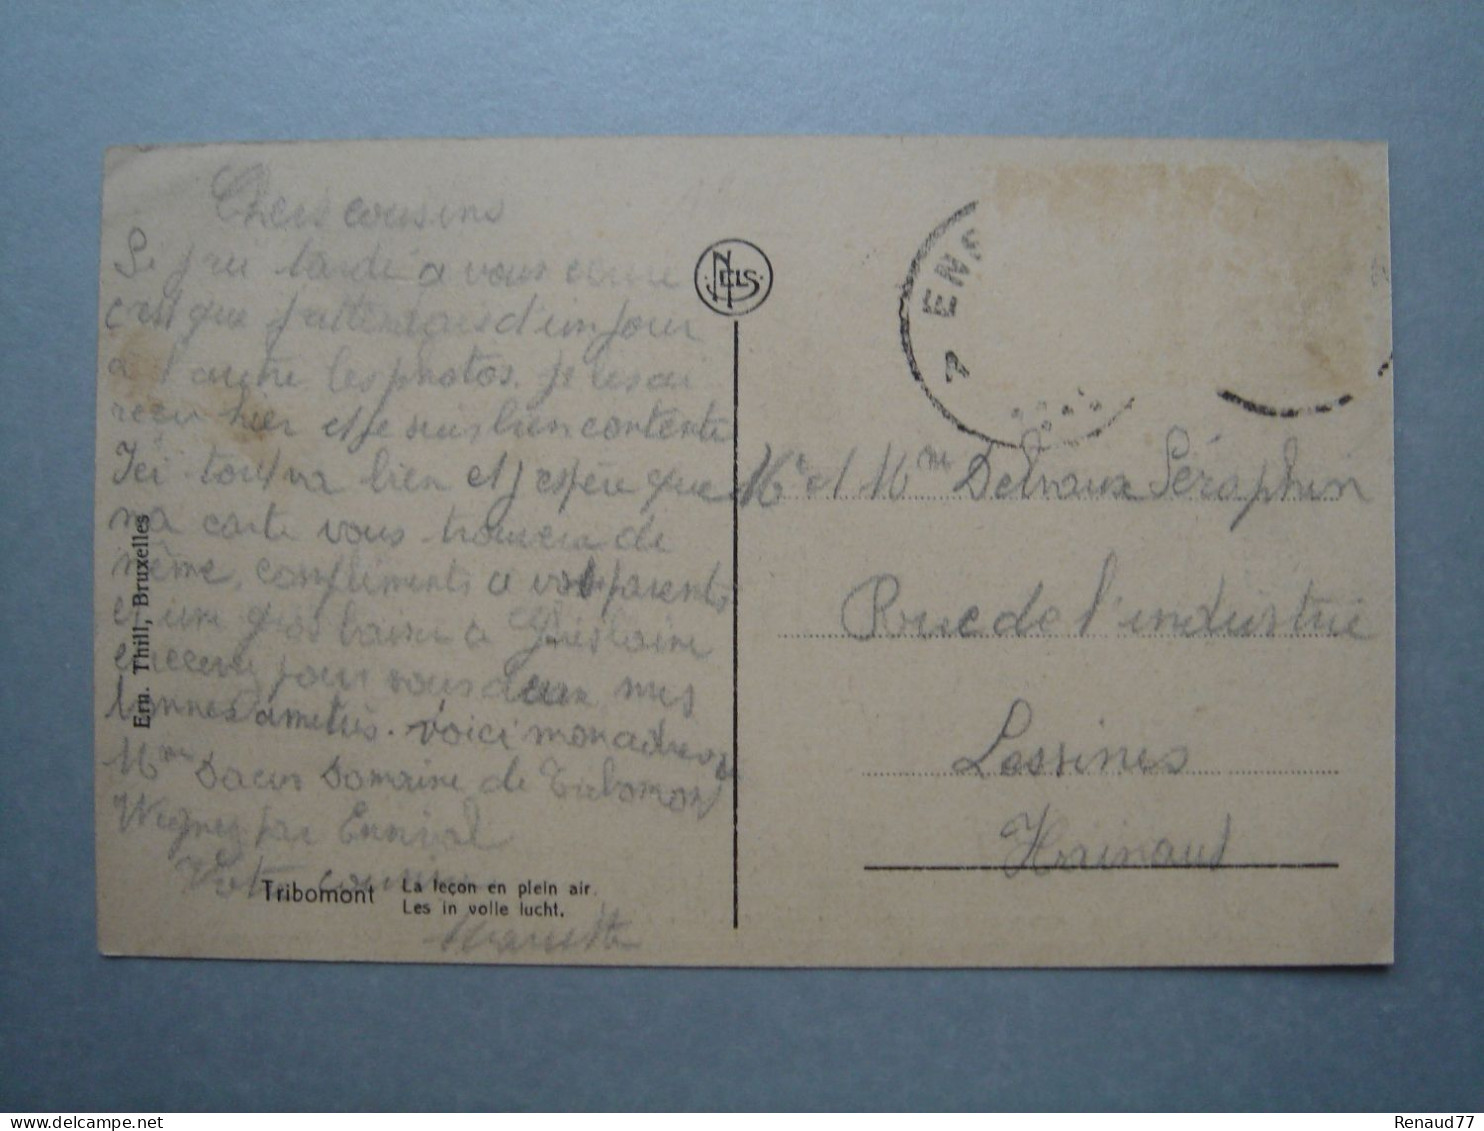 Chers cousins
Si j'ai tardé a vous écrire
c'est que j'attendais d'un jour
a l'autre les photos. je les ai
reçu hier et je suis bien contente
Ici tout va bien et j'espère que
ma carte vous trouvera de
même, compliments a vos parents
et une gros baiser a Ghislaine
et recevez pour vous deux mes
bonnes amitiés. voici mon adresse
Mme Daeus Domaine de Tribomont
Wegnez par Ensival
Votre cousine
Mariette
Ern. Thill, Bruxelles
Tribomont
La leçon en plein air.
Les in volle lucht.
NELS
7 ENS
Mr et Mme Delvaux Séraphin
Rue de l'industrie
Lessines
Hainaut
Renaud77